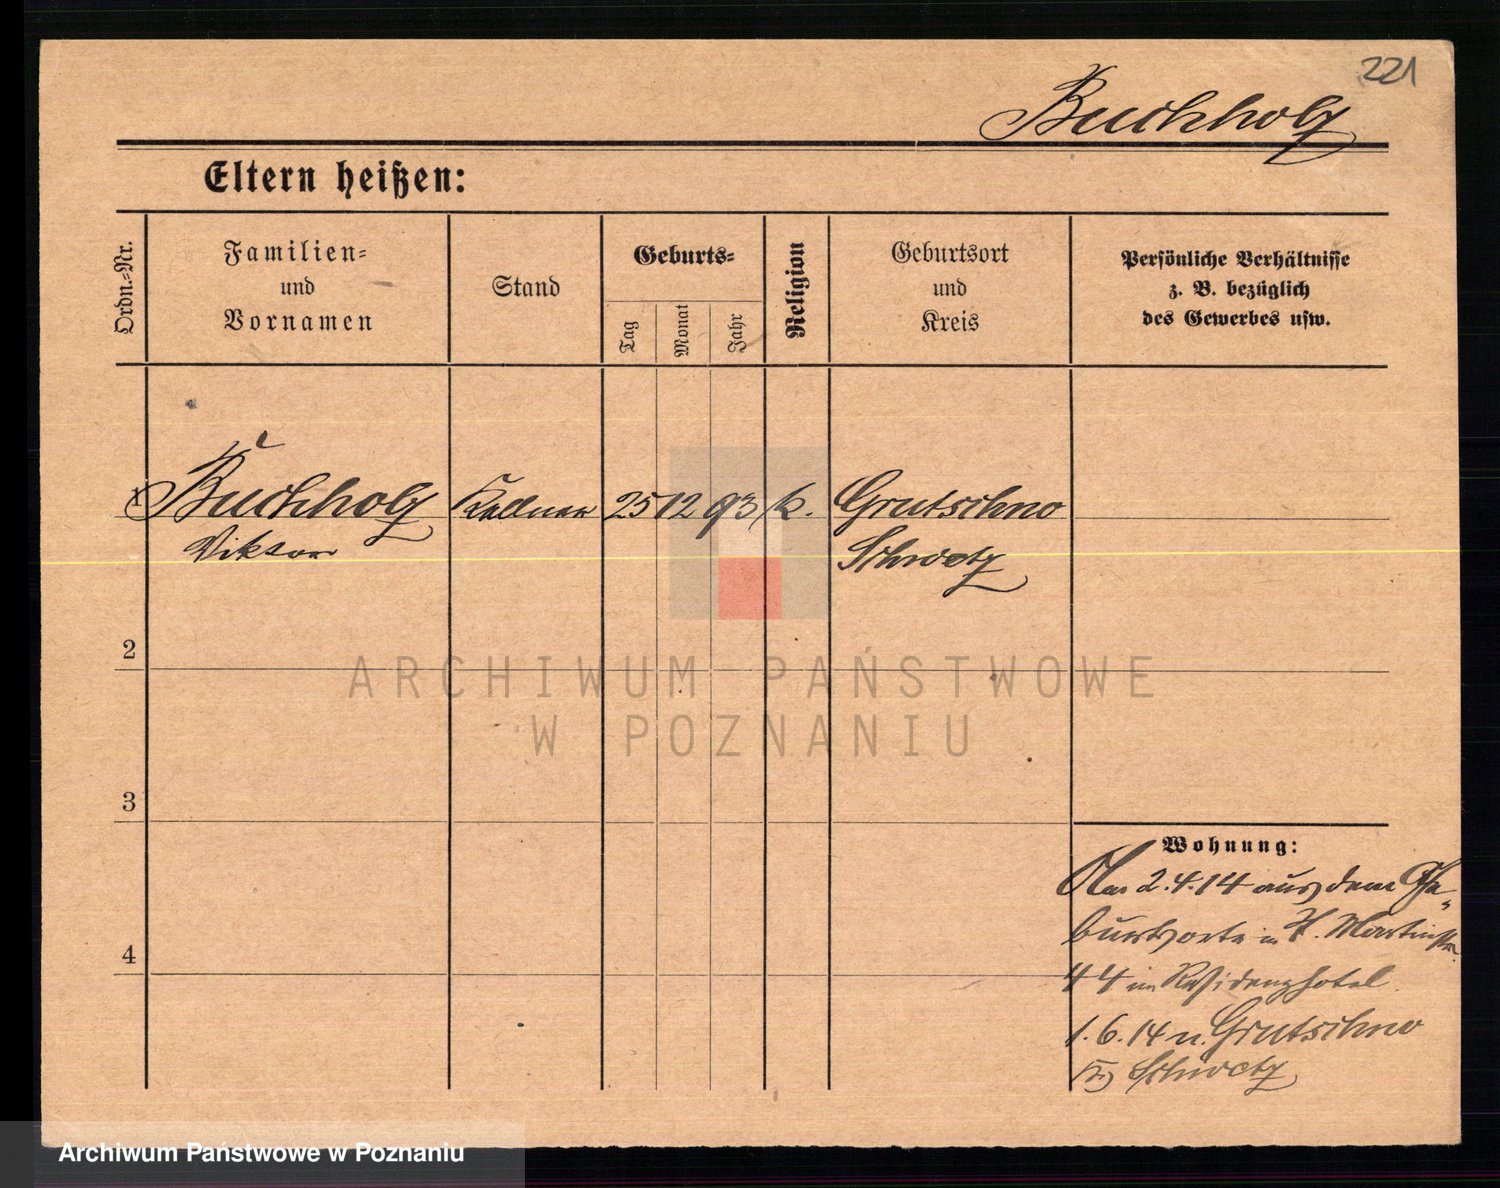 221
Buchholz
Eltern heißen:
Ordn.-Nr.
Familien-
und
Vornamen
Stand
Geburts-
Tag
Monat
Jahr
Religion
Geburtsort
und
Kreis
Persönliche Verhältnisse
z. B. bezüglich
des Gewerbes usw.
1 Buchholz Kellner 25 12 93 k. Grutschno
Viktor Schwetz
2
ARCHIWUM PAŃSTWOWE
W POZNANIU
3
Wohnung:
2.4.14 aus dem Ge-
burtsorte in St. Martinstr.
4
44 im Residenzhotel
1.6.14 n. Grutschno
Schwetz
Archiwum Państwowe w Poznaniu